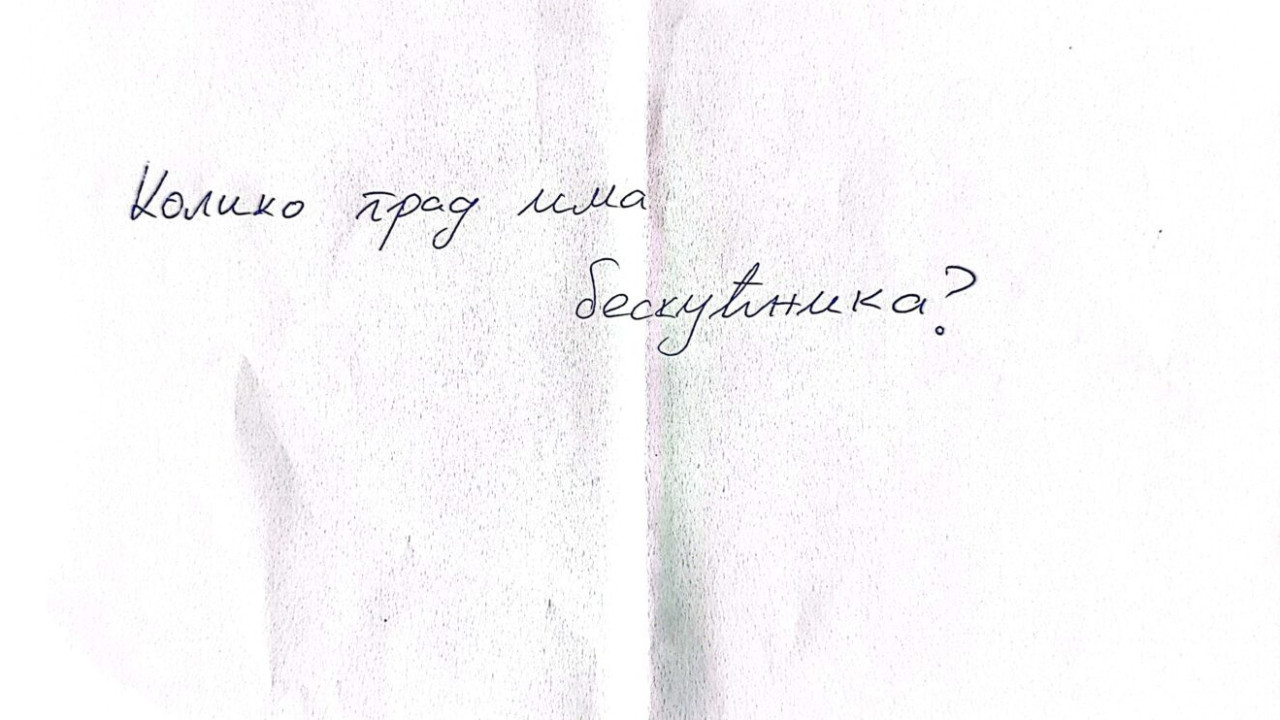 Колико град има
бескућника?